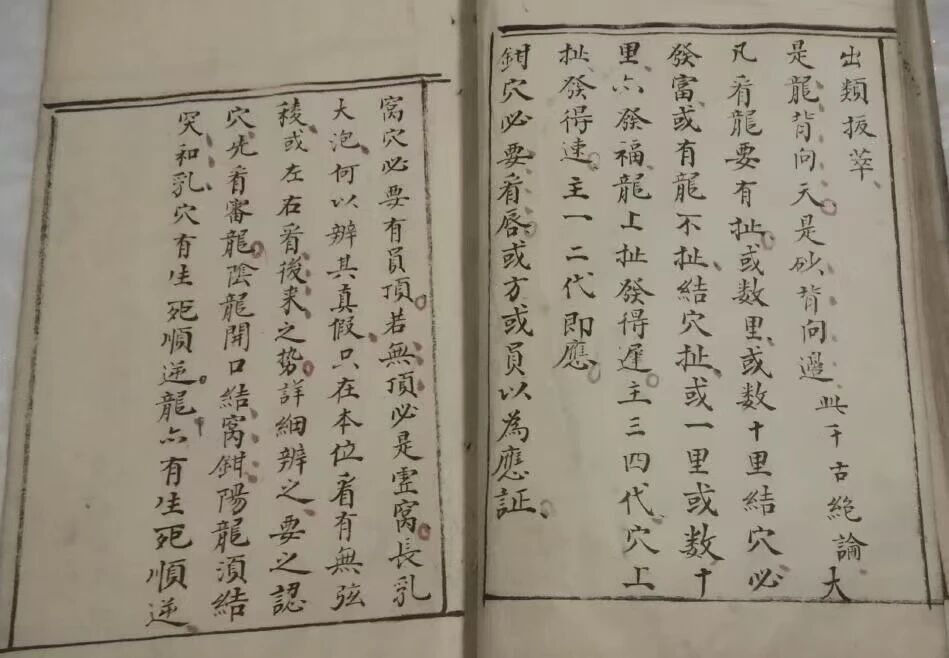 出類拔萃
是龍背向天是砂背向邊此千古絶論大
凡看龍要有扯或数里或数十里結穴必
發富或有龍不扯結穴扯或一里或数十
里亦發福龍上扯發得遲主三四代穴上
扯發得速主一二代即應
鉗穴必要看唇或方或員以為應証
窩穴必要有員頂若無頂必是虚窩長乳
大泡何以辨其真假只在本位看有無弦
稜或左右看後来之势詳細辨之要之認
穴先看審龍陰龍開口結窩鉗陽龍須結
突和乳穴有生死順逆龍亦有生死順逆